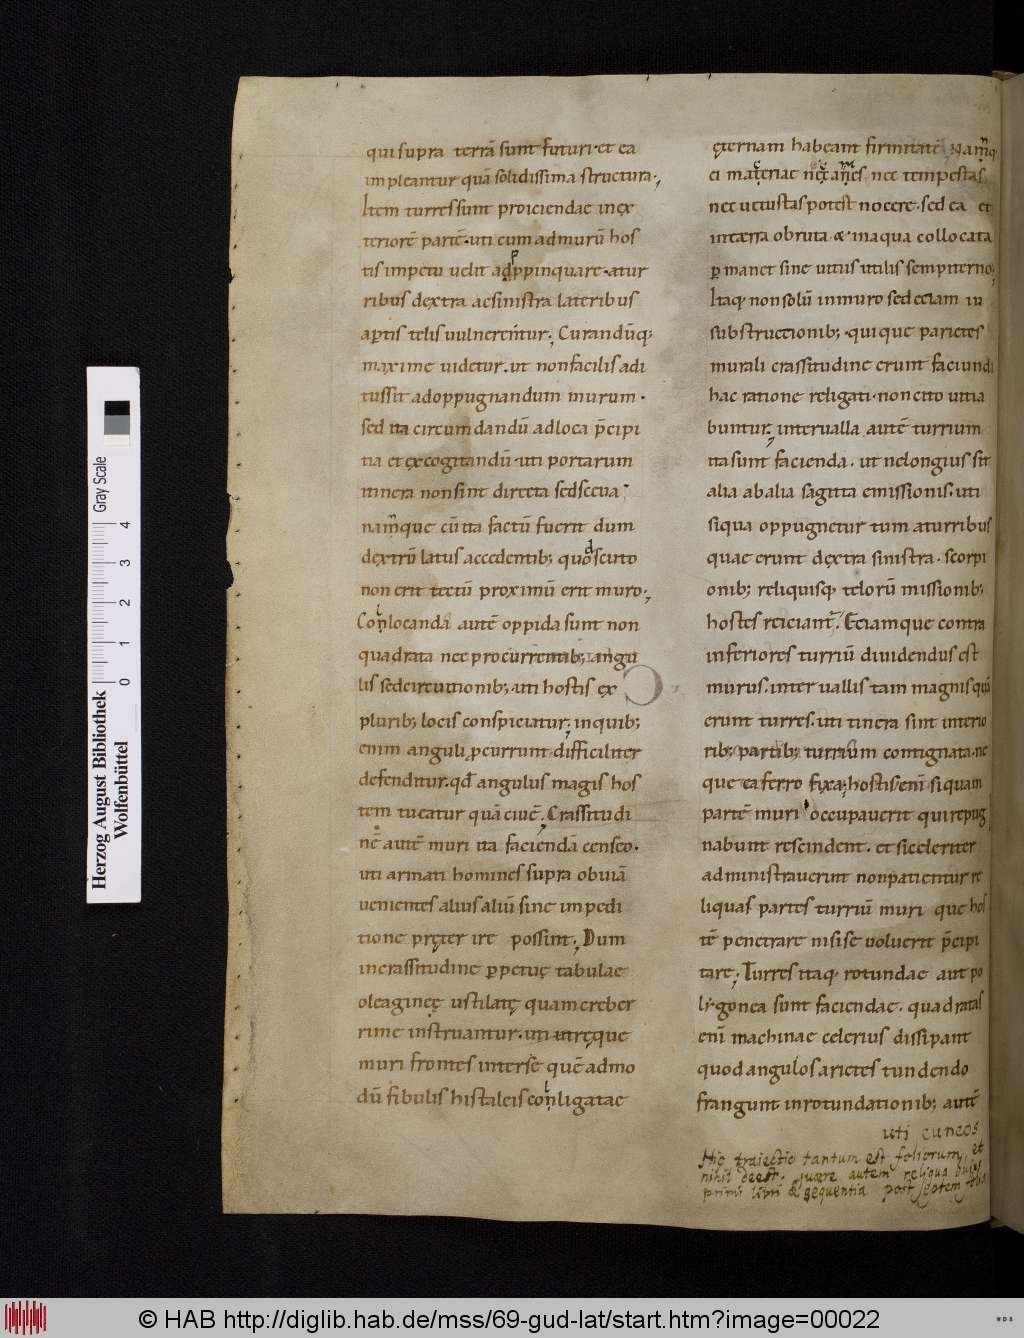 qui supra terrā sunt futuri · et ea
impleantur quā solidissima structura ·,
Item turres sunt proiciendae in ex
teriorē partē · uti cum ad murū hos
tis impetu velit adppinquare · a tur
ribus dextra ac sinistra lateribus
aptis telis vulnerentur ·, Curandūq;
maxime uidetur · ut non facilis adi
tus sit ad oppugnandum murum ·
sed ita circumdandū ad loca p̄cipi
tia et excogitandū · uti portarum
itinera non sint directa sed sceua ·
namque cū ita factū fuerit dum
dextrū latus accedentib; quod scuto
non erit tectū proximū erit muro ·,
Conlocanda autē oppida sunt non
quadrata nec procurrentib; angu
lis sed circuitionib; · uti hostis ex
plurib; locis conspiciatur ·, in quib;
enim anguli pcurrunt · difficiliter
defenditur · qđ angulus magis hos
tem tueatur quā ciuē ·, Crassitudi
nē autē muri ita faciendā censeo ·
uti armati homines supra obuiā
uenientes alius aliū sine impedi
tione pręter ire possint ·, Dum
in crassitudine ppetuę tabulae
oleagineę ustilatę quam creber
rime instruantur · uti utręque
muri frontes inter se quē admo
dū fibulis his taleis conligatae
ęternam habeant firmitatē Namq
ei materiae nec tempestas
nec uetustas potest nocere · sed ea et
in terra obruta & in aqua collocata
pmanet sine uitiis utilis sempiterno;
Itaq non solū in muro sed etiam in
substructionib; · qui que parietes
murali crassitudine erunt faciundi
hac ratione religati · non cito uitia
buntur ·, interualla autē turrium
ita sunt facienda · ut ne longius sit
alia ab alia sagitta emissionis · uti
siqua oppugnetur tum a turribus
quae erunt dextra sinistra · scorpi
onib; reliquisq telorū missionib;
hostes reiciant Eciamque contra
inferiores turriū diuidendus est
murus · interuallis tam magnis quā
erunt turres · uti itinera sint interio
rib; partib; turrium contignata · ne
que ea ferro fixa; hostis enī siquam
partē muri occupauerit qui repug
nabunt rescindent · et si celeriter
administrauerint non patientur re
liquas partes turriū muri que hos
tē penetrare nisi se uoluerit p̄cipi
tare ·, Turres itaq rotundae aut po
ly·gonea sunt faciendae · quadratas
enī machinae celerius dissipant
quod angulos arietes tundendo
frangunt · in rotundationib; autē
uti cuneos
Hic traiectio tantum est foliorum, et
nihil deest. quære autem reliqua huius
primi libri & sequentia post septem
Herzog August Bibliothek
Wolfenbüttel
0 1 2 3 4
Gray Scale
© HAB http://diglib.hab.de/mss/69-gud-lat/start.htm?image=00022
WDB